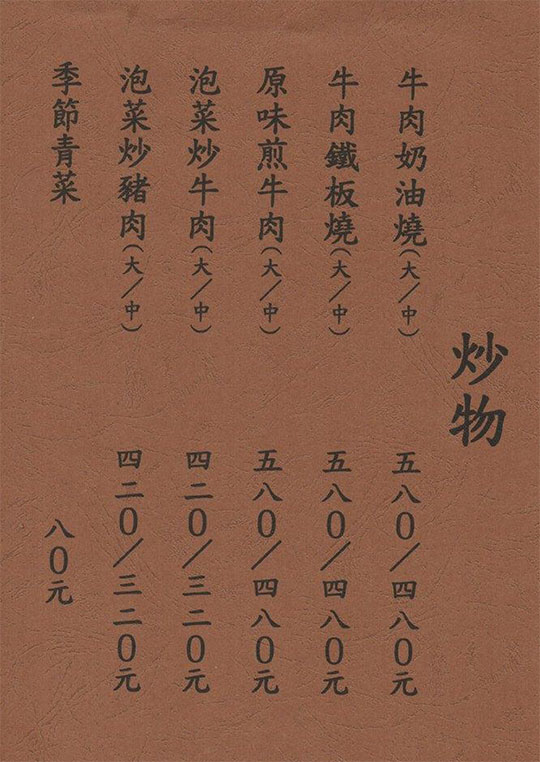 炒物
牛肉奶油燒(大/中) 五八0/四八0元
牛肉鐵板燒(大/中) 五八0/四八0元
原味煎牛肉(大/中) 五八0/四八0元
泡菜炒牛肉(大/中) 四二0/三二0元
泡菜炒豬肉(大/中) 四二0/三二0元
季節青菜 八0元